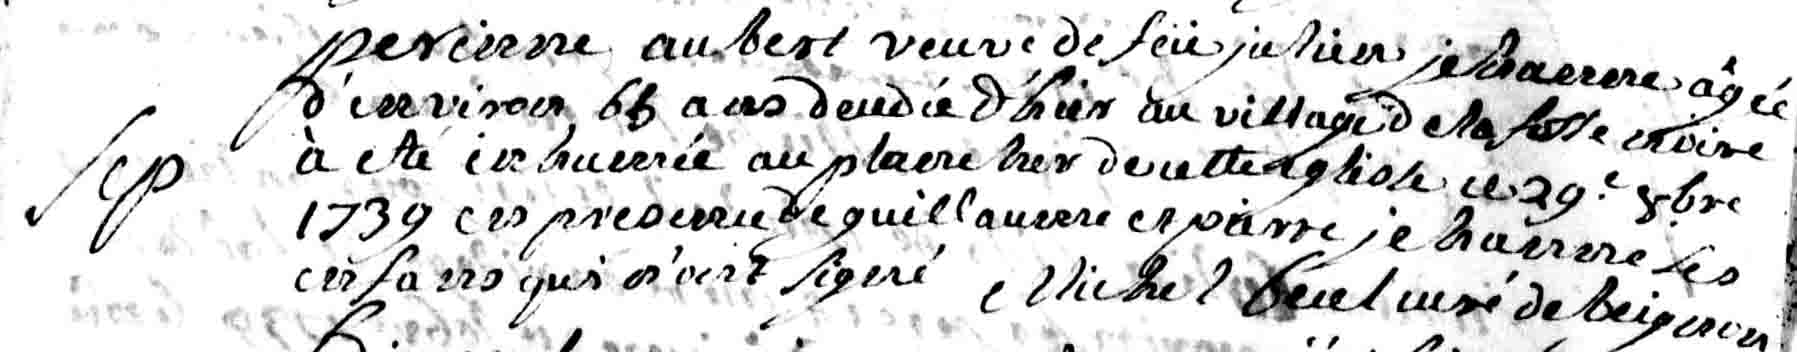 perinne aubert veuve de feüe julien jehanne âgée
d'environ 65 ans decedée d'hier au village de la fosse noire
Sep à esté inhumée au plancher de cette eglise ce 29.e 8bre
1739 en presence de guillaume et pierre jehanne ses
enfans qui n'ont signé Michel curé de beignon